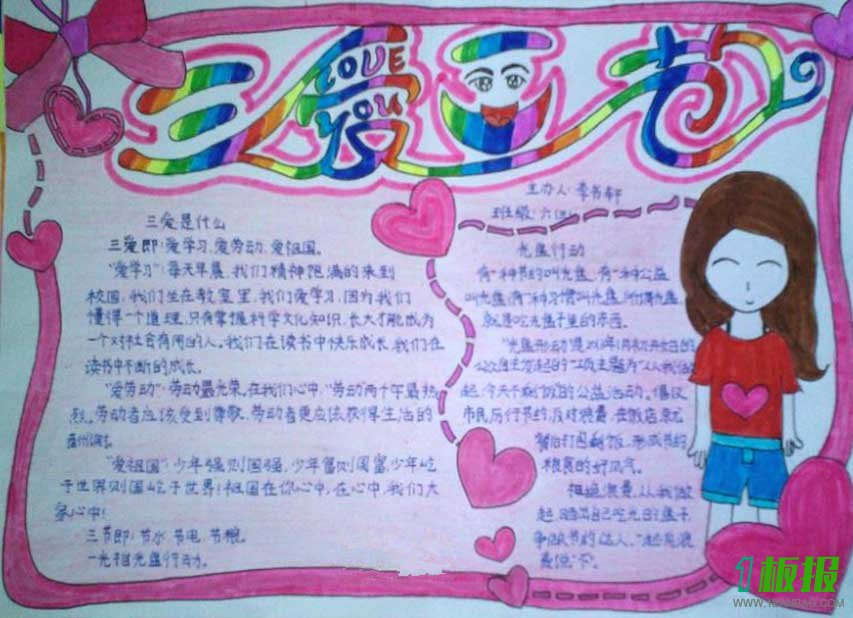 三爱三节
LOVE
YOU
三爱是什么
三爱即:爱学习、爱劳动、爱祖国。
"爱学习":每天早晨,我们精神饱满的来到
校园,我们坐在教室里,我们爱学习,因为我们
懂得一个道理,只有掌握科学文化知识,长大才能成为
一个对社会有用的人。我们在读书中快乐成长,我们在
读书中不断的成长。
"爱劳动":劳动最光荣,在我们心中,"劳动"两个字最热
烈。劳动者应该受到尊敬,劳动者更应该获得生活的
"爱祖国":少年强则国强,少年富则国富,少年屹
于世界则国屹于世界!祖国在你心中,在心中,我们大
家心中!
三节即:节水、节电、节粮。
光盘行动。
主办人:李书轩
班级:六
光盘行动
有一种节约叫光盘,有一种公益
叫光盘,有一种习惯叫光盘,所谓光盘,
就是吃光盘子里的东西。
"光盘行动"是
公众自主发起的 主题为"从我
起,今天不剩饭"的公益活动。倡议
市民厉行节约,反对浪费,在饭店就
餐后打包剩饭,形成节约
粮食的好风气。
拒绝浪费,从我做
起,
争做节约达人,
1板报
WWW.1BANBAO.COM